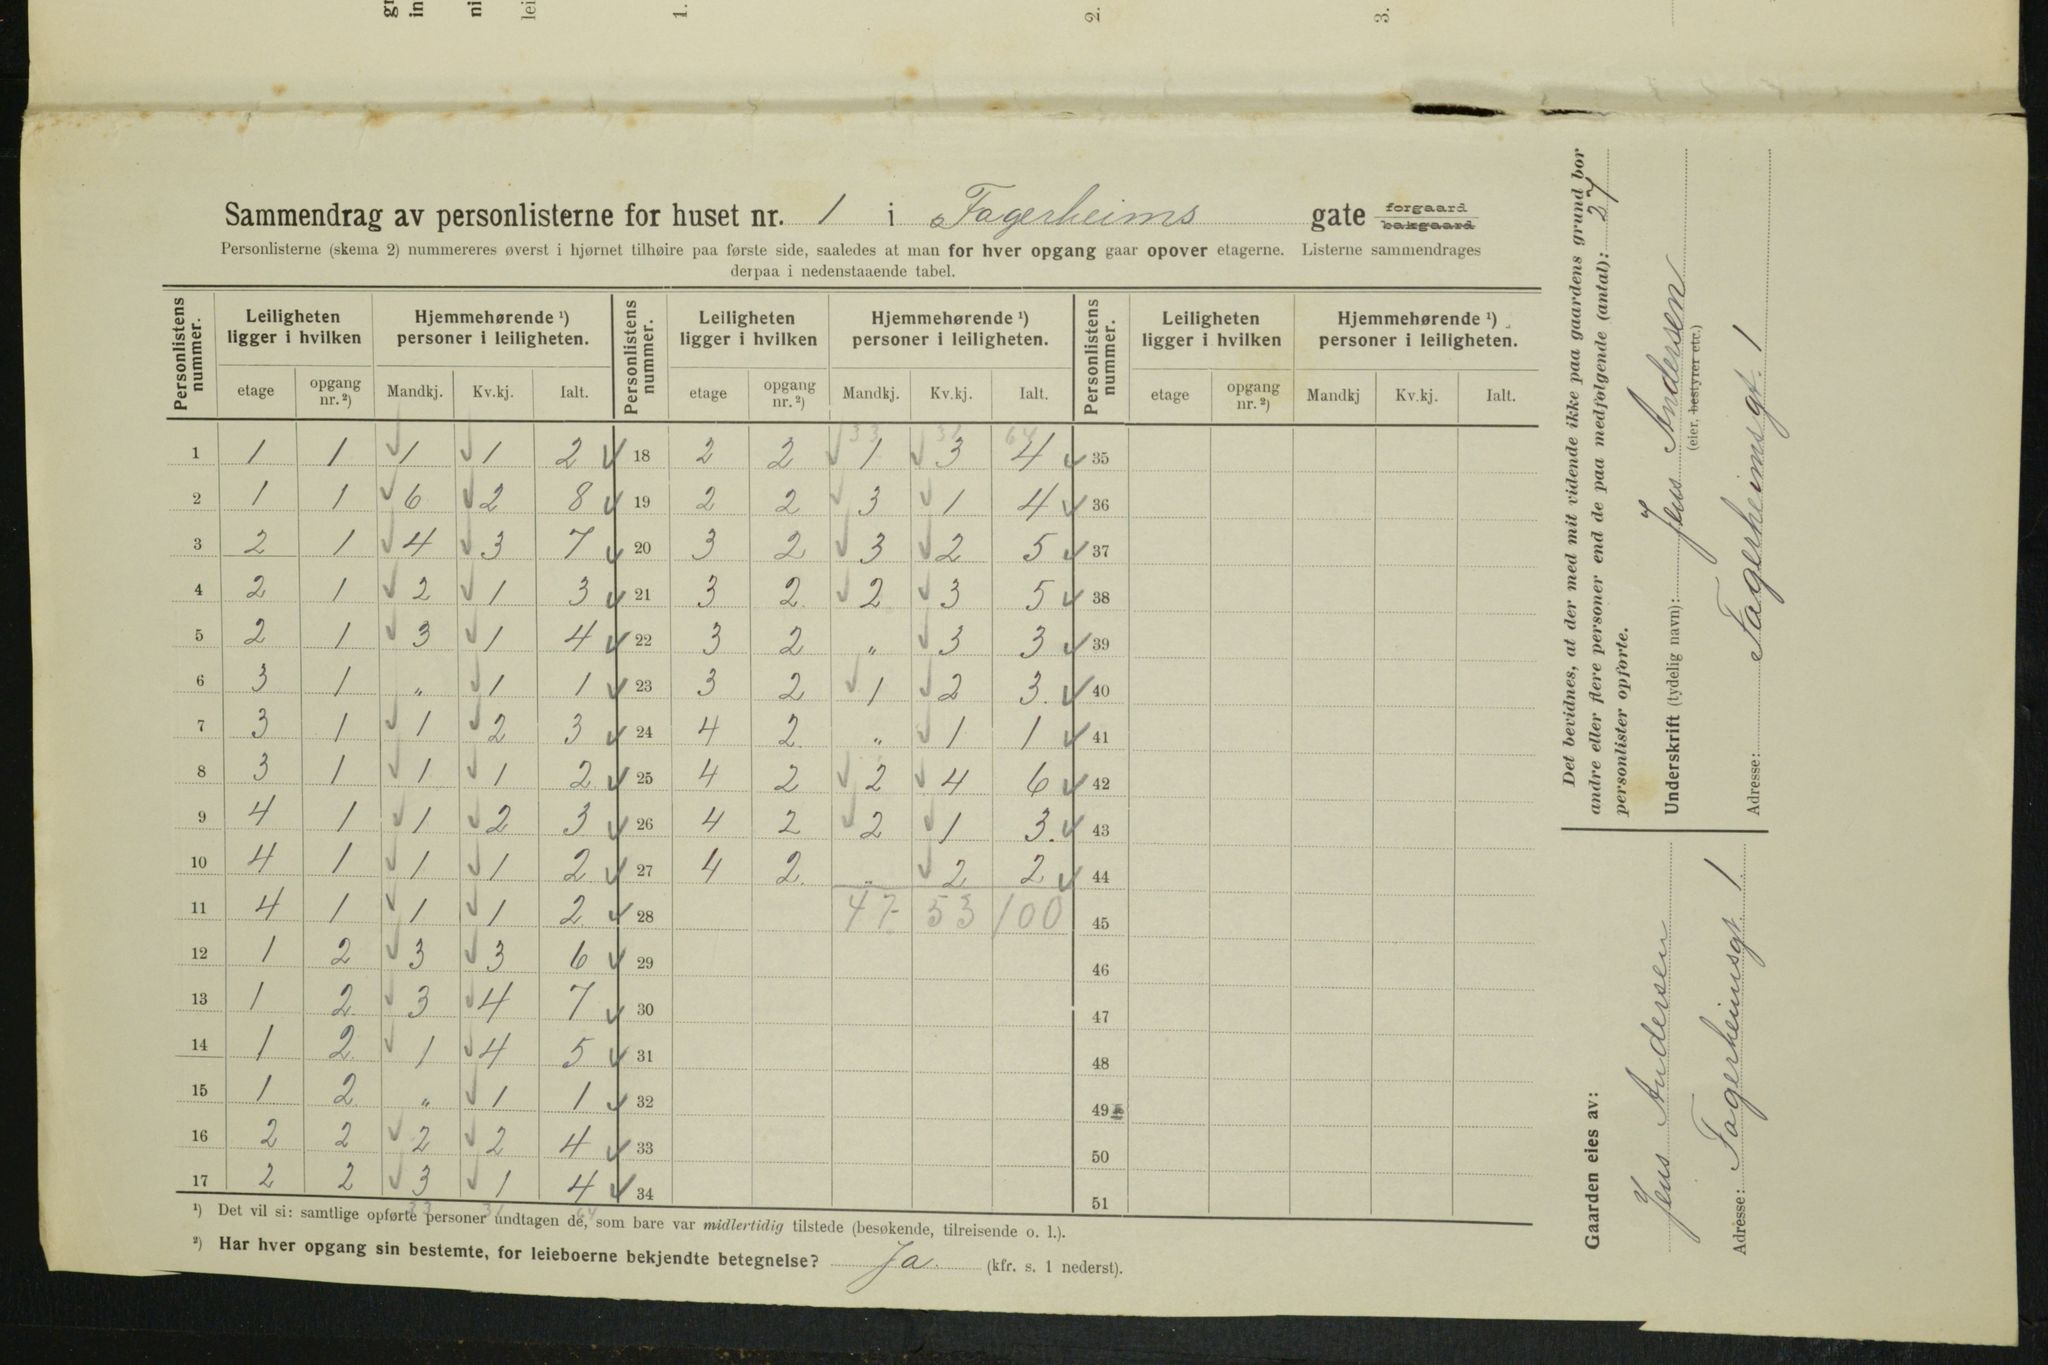 Sammendrag av personlisterne for huset nr. 1 i Fagerheims gate forgaard bakgaard
Personlisterne (skema 2) nummereres øverst i hjørnet tilhøire paa første side, saaledes at man for hver opgang gaar opover etagerne. Listerne sammendrages
derpaa i nedenstaaende tabel.
Personlistens nummer. Leiligheten ligger i hvilken Hjemmehørende ¹) personer i leiligheten. Personlistens nummer. Leiligheten ligger i hvilken Hjemmehørende ¹) personer i leiligheten. Personlistens nummer. Leiligheten ligger i hvilken Hjemmehørende ¹) personer i leiligheten.
etage opgang nr. ²) Mandkj. Kv.kj. Ialt. etage opgang nr. ²) Mandkj. Kv.kj. Ialt. etage opgang nr. ²) Mandkj Kv.kj. Ialt.
33 31 64
1 1 1 1 1 2 18 2 2 1 3 4 35
2 1 1 6 2 8 19 2 2 3 1 4 36
3 2 1 4 3 7 20 3 2 3 2 5 37
4 2 1 2 1 3 21 3 2 2 3 5 38
5 2 1 3 1 4 22 3 2 „ 3 3 39
6 3 1 „ 1 1 23 3 2 1 2 3. 40
7 3 1 1 2 3 24 4 2 „ 1 1 41
8 3 1 1 1 2 25 4 2 2 4 6 42
9 4 1 1 2 3 26 4 2 2 1 3. 43
10 4 1 1 1 2 27 4 2 „ 2 2 44
11 4 1 1 1 2 28 47 53 100 45
12 1 2 3 3 6 29 46
13 1 2 3 4 7 30 47
14 1 2 1 4 5 31 48
15 1 2 „ 1 1 32 49
16 2 2 2 2 4 33 50
17 2 2 3 1 4 34 51
33 31 64
¹) Det vil si: samtlige opførte personer undtagen de, som bare var midlertidig tilstede (besøkende, tilreisende o. l.).
²) Har hver opgang sin bestemte, for leieboerne bekjendte betegnelse? Ja. (kfr. s. 1 nederst).
Det bevidnes, at der med mit vidende ikke paa gaardens grund bor
andre eller flere personer end de paa medfølgende (antal): 27
personlister opførte.
Underskrift (tydelig navn): Jens Andersen
(eier, bestyrer etc.)
Adresse: Fagerheimsgt. 1
Gaarden eies av:
Jens Andersen
Adresse: Fagerheimsgt. 1
1.
2.
3.
gr
in
ni
lei